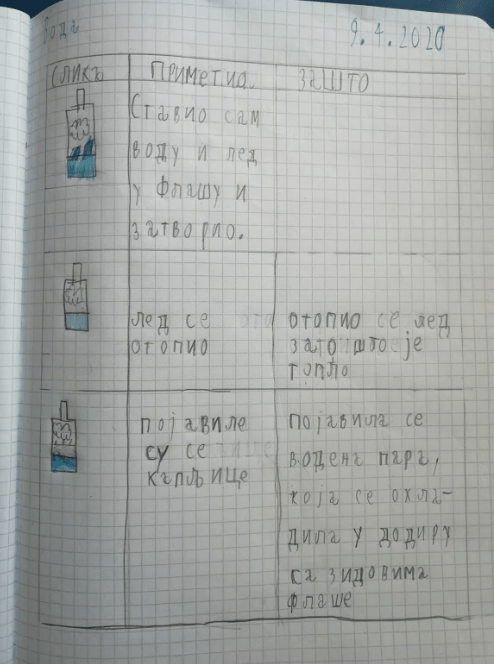 Вода
9.4.2020
СЛИКА ПРИМЕТИО ЗАШТО
Ставио сам
воду и лед
у флашу и
затворио.
лед се
отопио
отопио се лед
зато што је
топло
појавиле
су се
капљице
појавила се
водена пара,
која се охла-
дила у додиру
са зидовима
флаше